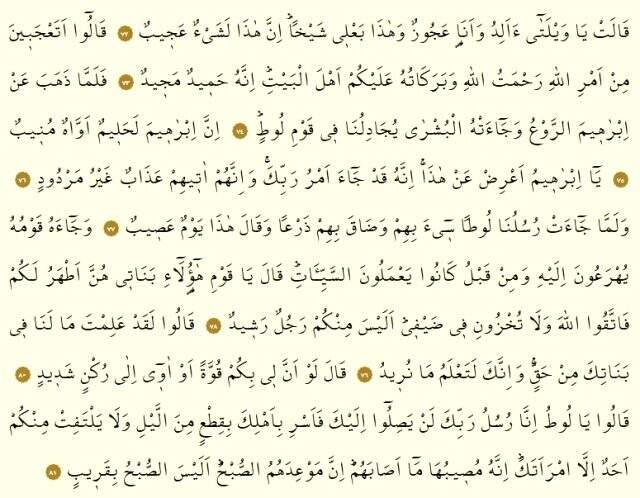 قَالَتْ يَا وَيْلَتٰٓى ءَاَلِدُ وَاَنَا۬ عَجُوزٌ وَهٰذَا بَعْل۪ي شَيْخًاۜ اِنَّ هٰذَا لَشَيْءٌ عَج۪يبٌ ﴿٧٢﴾ قَالُٓوا اَتَعْجَب۪ينَ
مِنْ اَمْرِ اللّٰهِ رَحْمَتُ اللّٰهِ وَبَرَكَاتُهُ عَلَيْكُمْ اَهْلَ الْبَيْتِۜ اِنَّهُ حَم۪يدٌ مَج۪يدٌ ﴿٧٣﴾ فَلَمَّا ذَهَبَ عَنْ
اِبْرٰه۪يمَ الرَّوْعُ وَجَٓاءَتْهُ الْبُشْرٰى يُجَادِلُنَا ف۪ي قَوْمِ لُوطٍۜ ﴿٧٤﴾ اِنَّ اِبْرٰه۪يمَ لَحَل۪يمٌ اَوَّاهٌ مُن۪يبٌ
﴿٧٥﴾ يَٓا اِبْرٰه۪يمُ اَعْرِضْ عَنْ هٰذَاۚ اِنَّهُ قَدْ جَٓاءَ اَمْرُ رَبِّكَۚ وَاِنَّهُمْ اٰت۪يهِمْ عَذَابٌ غَيْرُ مَرْدُودٍ ﴿٧٦﴾
وَلَمَّا جَٓاءَتْ رُسُلُنَا لُوطًا س۪ٓيءَ بِهِمْ وَضَاقَ بِهِمْ ذَرْعًا وَقَالَ هٰذَا يَوْمٌ عَص۪يبٌ ﴿٧٧﴾ وَجَٓاءَهُ قَوْمُهُ
يُهْرَعُونَ اِلَيْهِ وَمِنْ قَبْلُ كَانُوا يَعْمَلُونَ السَّيِّـَٔاتِۜ قَالَ يَا قَوْمِ هٰٓؤُ۬لَٓاءِ بَنَات۪ي هُنَّ اَطْهَرُ لَكُمْ
فَاتَّقُوا اللّٰهَ وَلَا تُخْزُونِ ف۪ي ضَيْف۪يۜ اَلَيْسَ مِنْكُمْ رَجُلٌ رَش۪يدٌ ﴿٧٨﴾ قَالُوا لَقَدْ عَلِمْتَ مَا لَنَا ف۪ي
بَنَاتِكَ مِنْ حَقٍّۚ وَاِنَّكَ لَتَعْلَمُ مَا نُر۪يدُ ﴿٧٩﴾ قَالَ لَوْ اَنَّ ل۪ي بِكُمْ قُوَّةً اَوْ اٰو۪ٓي اِلٰى رُكْنٍ شَد۪يدٍ ﴿٨٠﴾
قَالُوا يَا لُوطُ اِنَّا رُسُلُ رَبِّكَ لَنْ يَصِلُٓوا اِلَيْكَ فَاَسْرِ بِاَهْلِكَ بِقِطْعٍ مِنَ الَّيْلِ وَلَا يَلْتَفِتْ مِنْكُمْ
اَحَدٌ اِلَّا امْرَاَتَكَۜ اِنَّهُ مُص۪يبُهَا مَٓا اَصَابَهُمْۜ اِنَّ مَوْعِدَهُمُ الصُّبْحُۜ اَلَيْسَ الصُّبْحُ بِقَر۪يبٍ ﴿٨١﴾